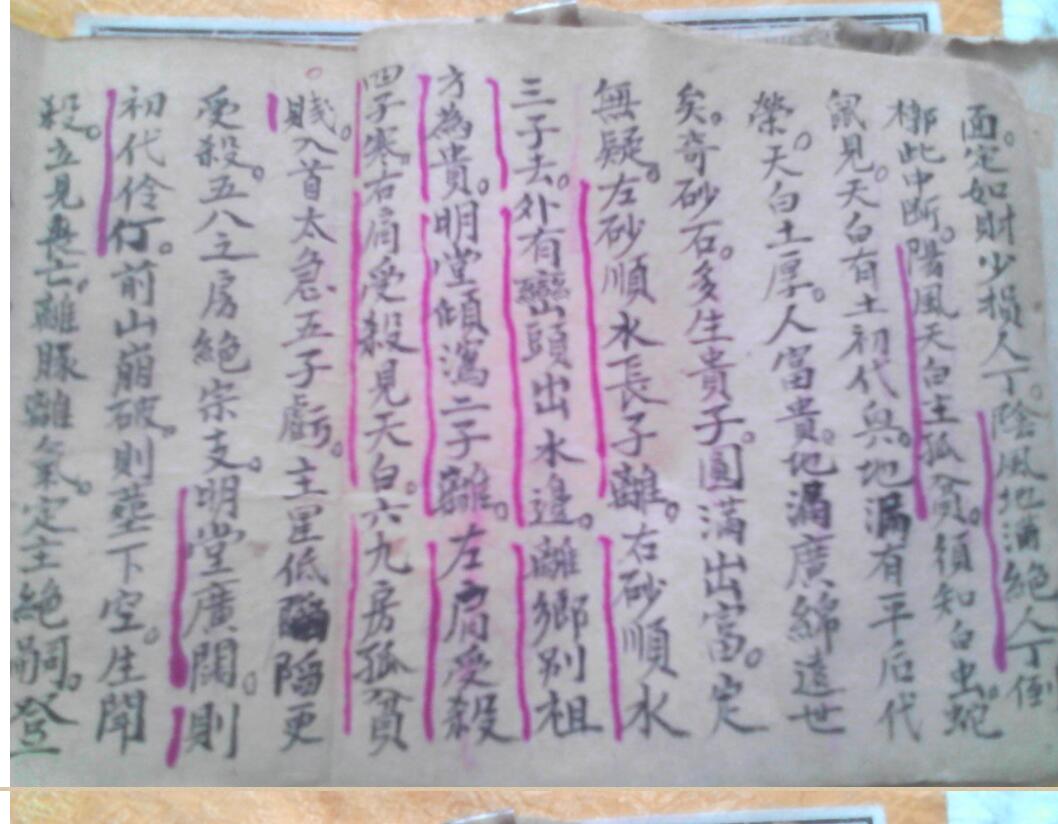 面。定如財少損人丁。陰風地漏絕人丁倒
槨此中断。陽風天白主孤貧。須知白虫。蛇
鼠見。天白有土初代興。地漏有平后代
榮。天白土厚。人富貴。地漏廣綿遠世
矣。奇砂石。多生貴子。圓滿出富。定
無疑。左砂順水長子離。右砂順水
三子去。外有巒頭出水邊。離鄉別祖
方為貴。明堂傾瀉二子離。左肩受殺
四子寒。右肩受殺見天白。六九房孤貧
賤。入首太急五子虧。主星低陷更
受殺。五八之房絕宗支。明堂廣闊。則
初代伶仃。前山崩破。則塋下空。生聞
殺。立見喪亡。離脉離氣。定主絕嗣。登